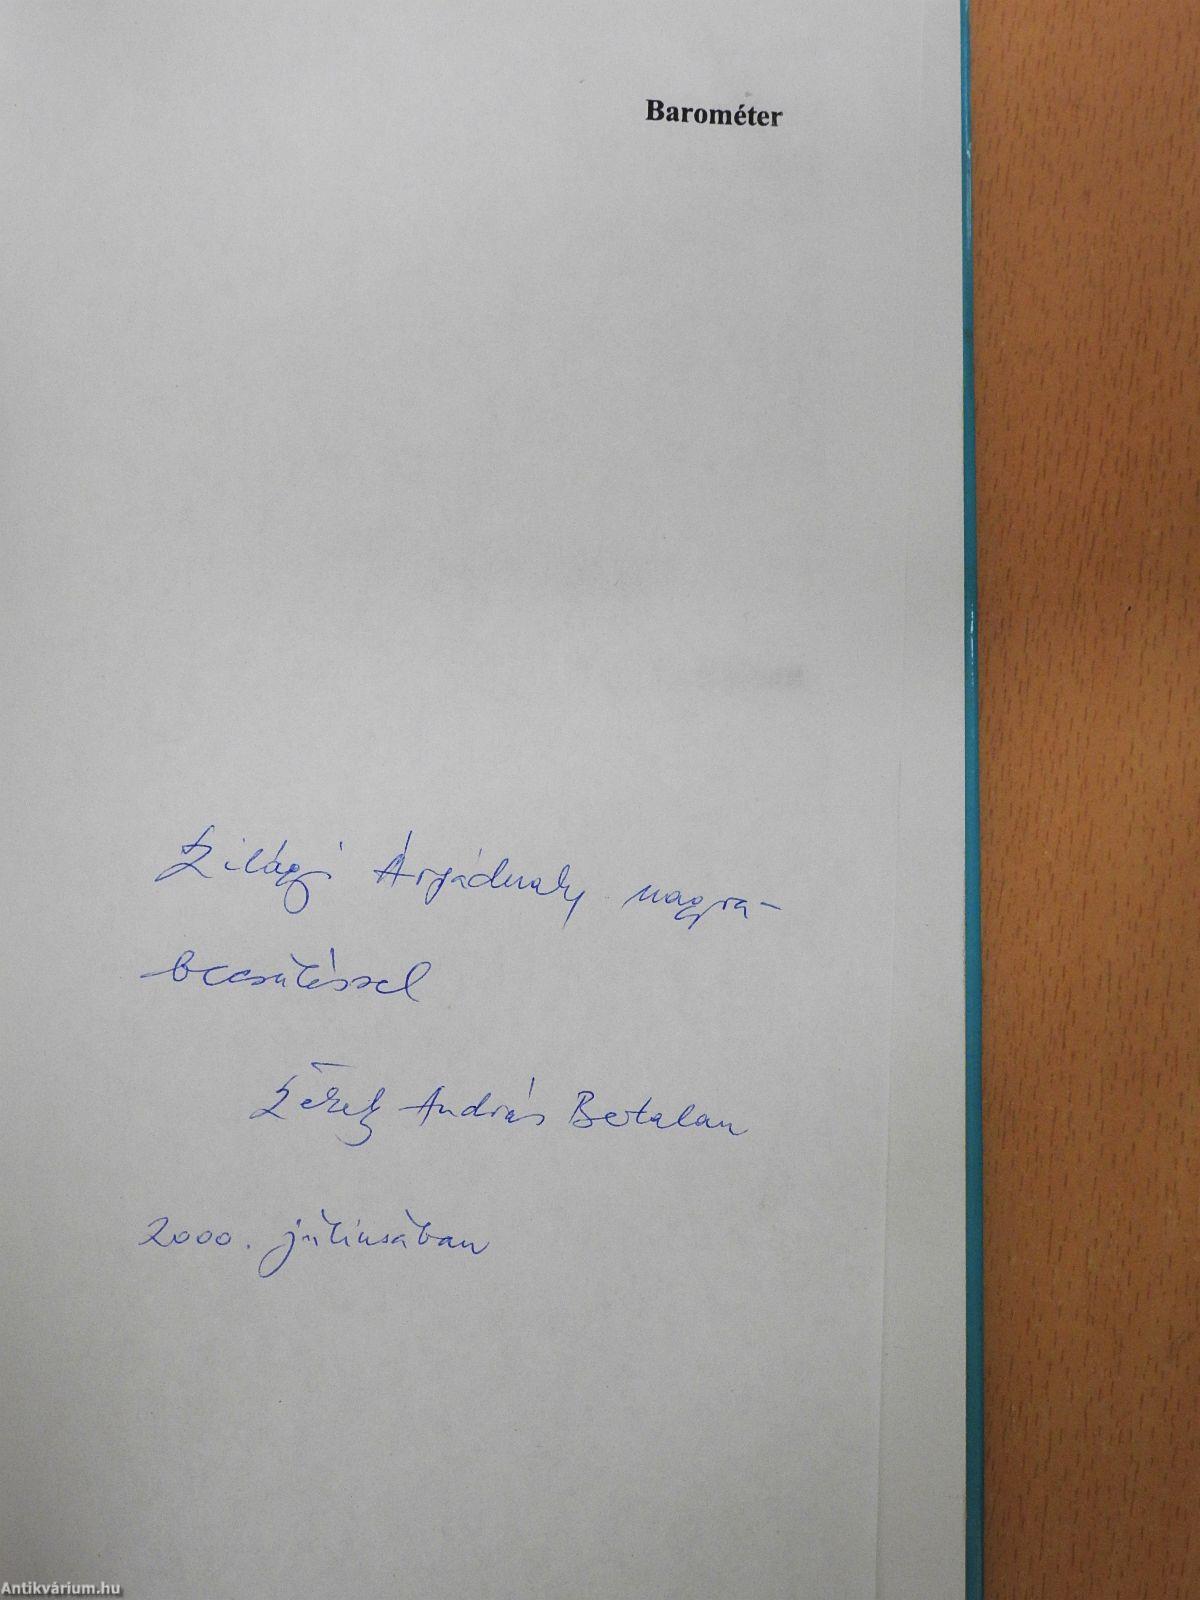 Barométer
Szilágyi Árpádnak nagyra-
becsüléssel
András Bertalan
2000. júliusában
Antikvárium.hu